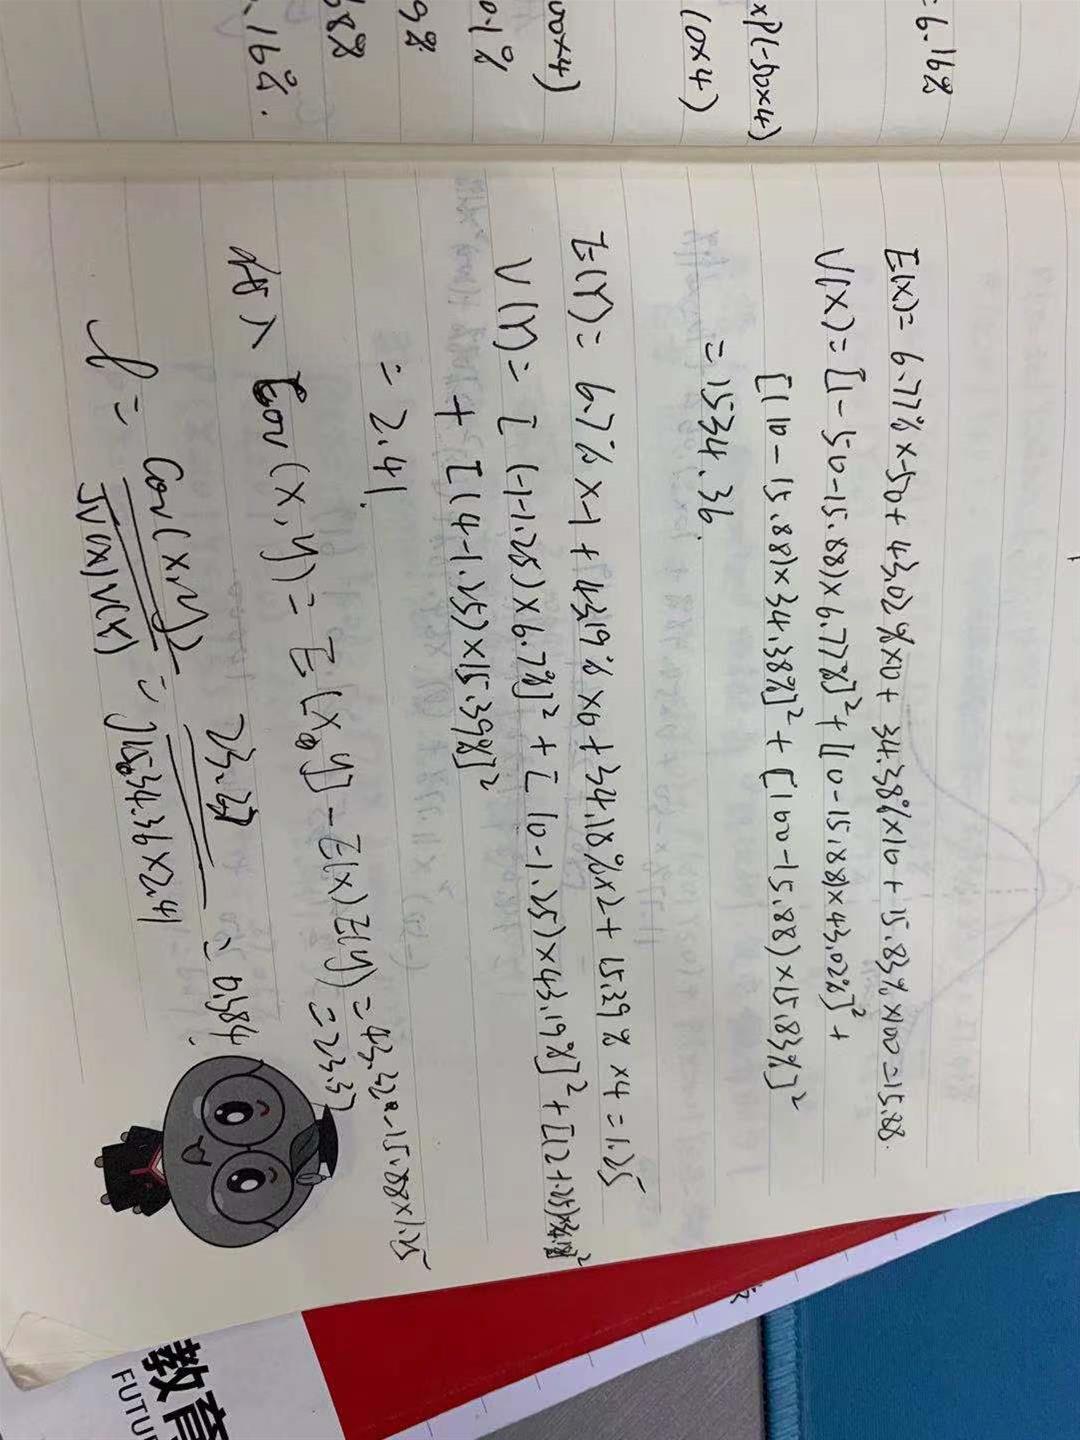 =6.16%
x41-50x4)
(10x4)
100x4)
0.1%
9%
.88
.16%.
E(X)= 6.77%×-50+ 43.02%×0+ 34.38%×10 + 15.83%×100=15.88.
V(X)=[(-50-15.88)×6.77%]²+[(0-15.88)×43.02%]²+
[(10-15.88)×34.38%]²+[(100-15.88)×15.83%]²
=1534.36.
E(Y)= 6.7%×-1+ 43.19%×0+34.18%×2+ 15.39%×4=1.25
V(Y)= [(-1-1.25)×6.7%]²+[(0-1.25)×43.19%]²+[(2-1.25)×34.18%]²
+[(4-1.25)×15.39%]²
=2.41.
Cov(X,Y)= E[XY]-E(X)E(Y)=43.22-15.88×1.25
=23.37
ρ= Cov(X,Y)/√V(X)V(Y) = 23.37/√1534.36×2.41 = 0.384.
教育
FUTU